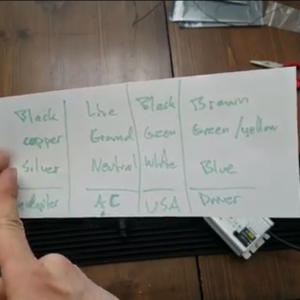 Black Live Black Brown
copper Ground Green Green/yellow
Silver Neutral White Blue
AC USA